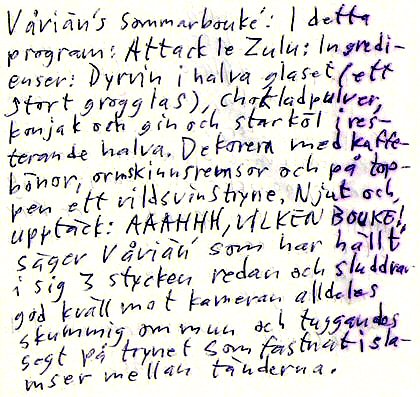 Våvián's sommarbouké: I detta
program: Attack le Zulu: Ingredi-
enser: Dyrvin i halva glaset (ett
stort grogglas), chokladpulver,
konjak och gin och starköl i res-
terande halva. Dekorera med kaffe-
bönor, ormskinnsremsor och på top-
pen ett vildsvinstryne. Njut och,
upptäck: AAAHHH, VILKEN BOUKÉ!,
säger Våvián som har hällt
i sig 3 stycken redan och sluddrar
god kväll mot kameran alldeles
skummig om mun och tuggandes
segt på trynet som fastnat i sla-
mser mellan tänderna.